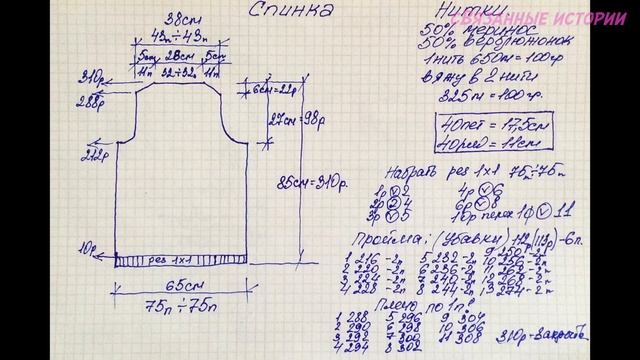 Спинка
38см
43п÷43п
5см 28см 5см
11п 32÷32п 11п
310р
288р
6см=22р
27см=98р
212р
85см=310р.
10р
рез 1х1
65см
75п÷75п
Нитки
СВЯЗАННЫЕ ИСТОРИИ
50% меринос
50% верблюжонок
1 нить 650м=100гр
вяжу в 2 нити
325м=100гр.
40пет=17,5см
40рядо=11см
Набрать рез 1х1 75п÷75п
1р V 2 4р V 6
2р 2 4 6р V 8
3р V 5 10р перех 1ф V 11
Пройма: (Убавки) (113р)-6п.
1 216-2п 5 232-2п 9 250-2п
2 220-2п 6 236-2п 10 256-2п
3 224-2п 7 240-2п 11 262-2п
4 228-2п 8 244-2п 12 268-2п
13 274-2п
Плечо по 1пᵉ
1 288 5 296 9 304
2 290 6 298 10 306
3 292 7 300 11 308
4 294 8 302
310р-Закрыть